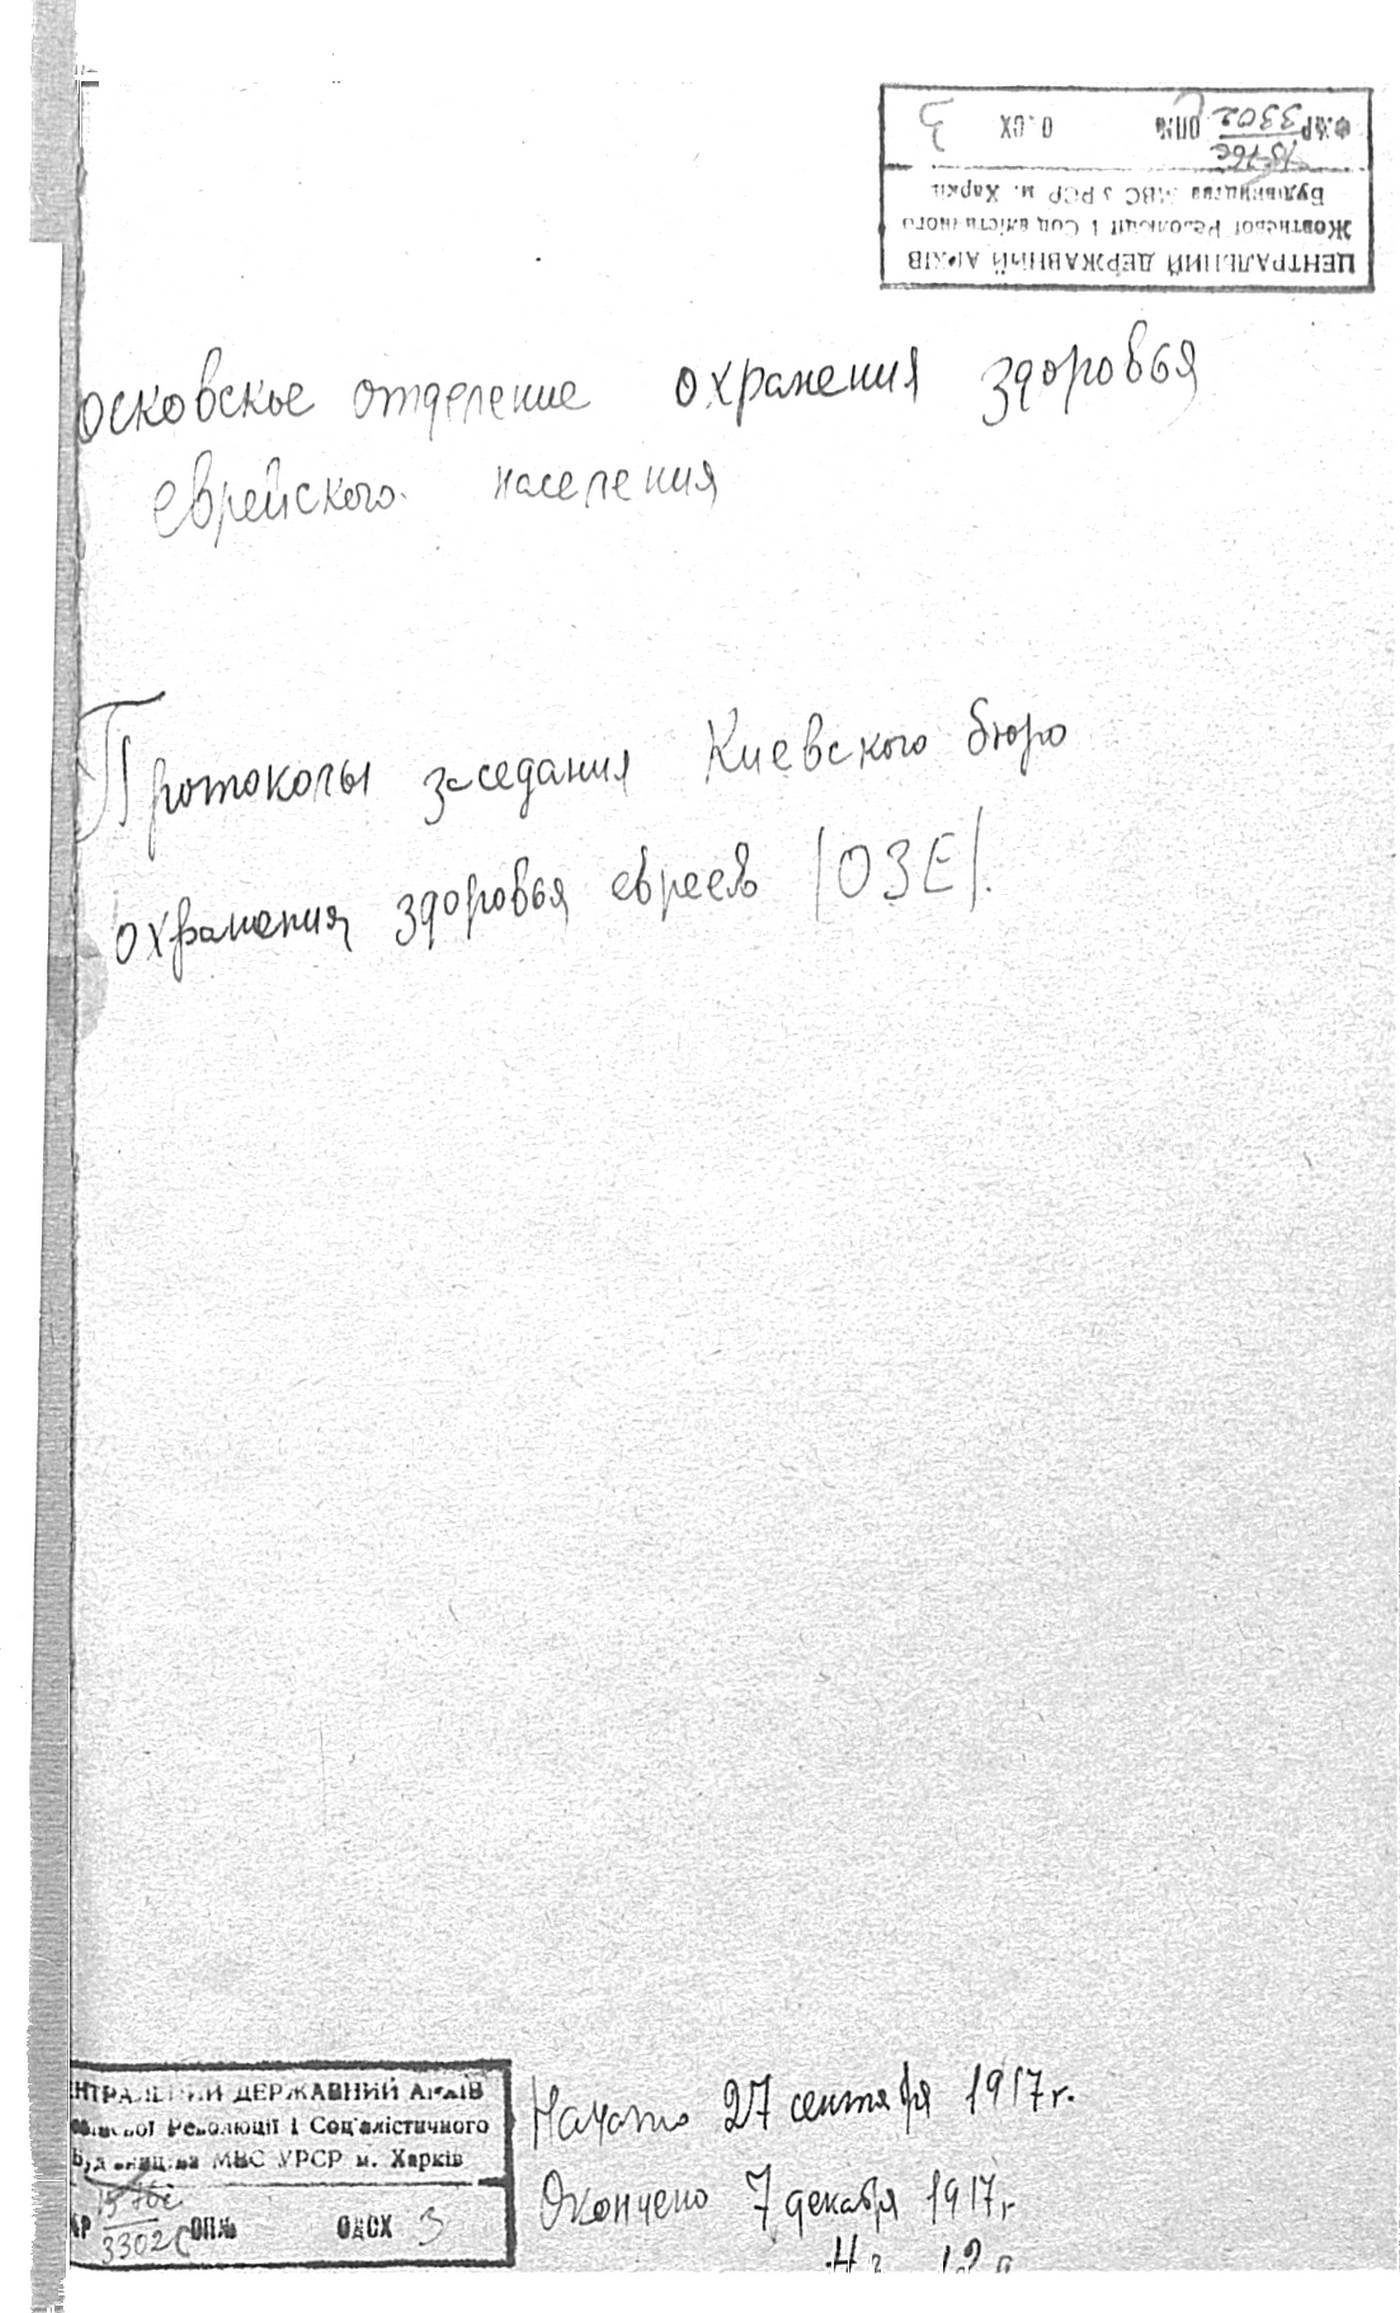 ЦЕНТРАЛЬНИЙ ДЕРЖАВНИЙ АРХІВ
Жовтневої Революції і Соціалістичного
Будівництва МВС УРСР м. Харків
Ф.№Р 3302 ОП.№ О.СХ 3
осковское отделение охранения здоровья
еврейского населения
Протоколы заседания Киевского бюро
охранения здоровья евреев /ОЗЕ/.
НТРАЛЬНИЙ ДЕРЖАВНИЙ АРХІВ
Революції і Соціалістичного
Будівництва МВС УРСР м. Харків
№Р 3302 ОП№ ОДСХ 3
Начато 27 сентября 1917 г.
Окончено 7 декабря 1917 г